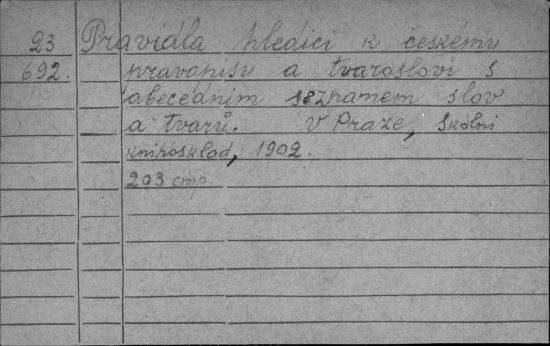 23 Pravidla hledící k českému
692. pravopisu a tvarosloví s
abecedním seznamem slov
a tvarů. V Praze, Školní
knihosklad, 1902.
203 стр.